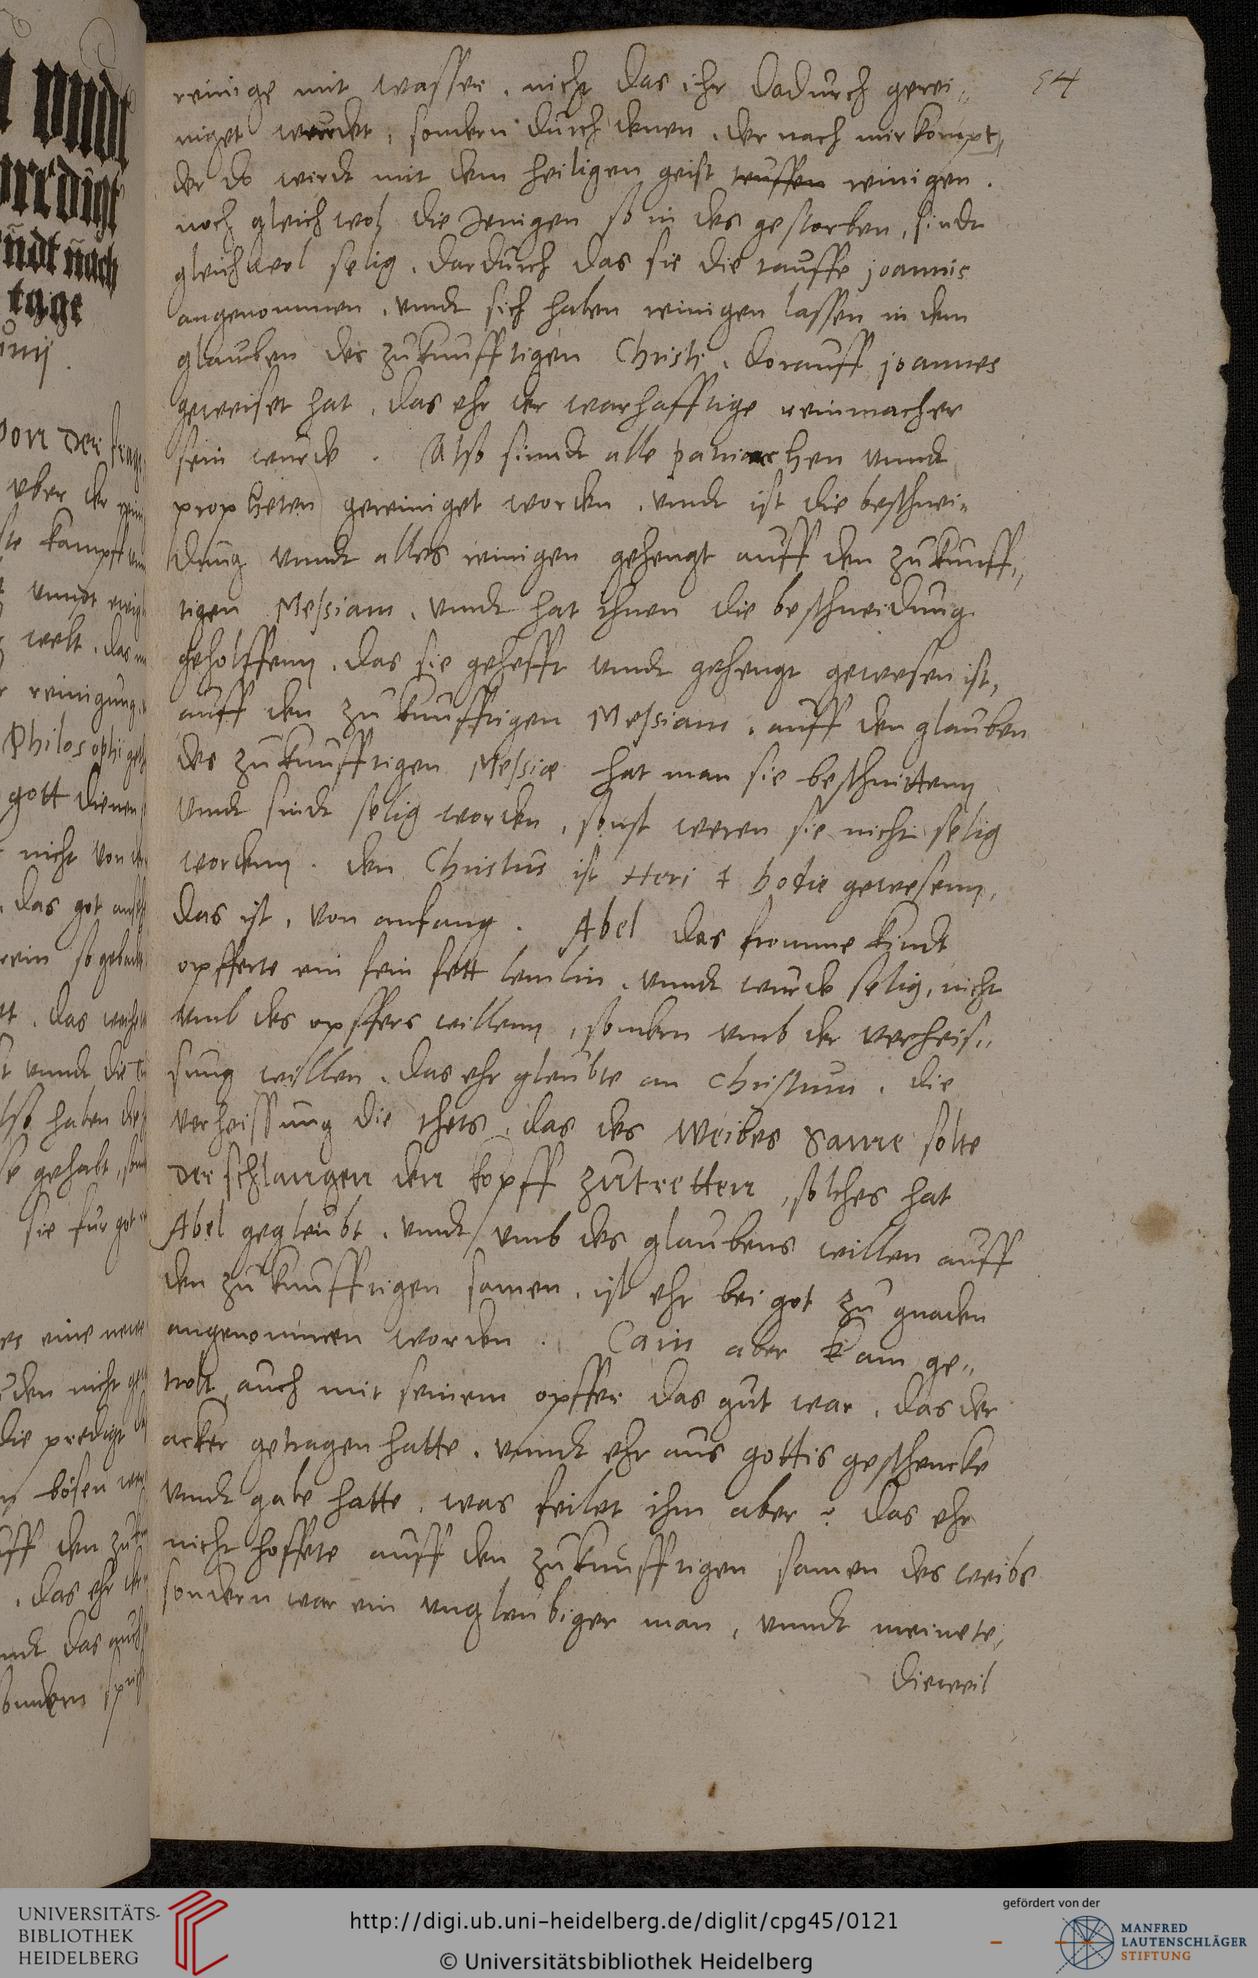 54
reinige mit wasser, nicht das ihr dadurch gerei-
niget werdet, sondern durch denen, der nach mir kompt,
der do wirdt mit dem heiligen geist teuffen reinigen.
noch gleich wol die Jenigen so in des gestorben, sindt
gleichwol selig, dardurch das sie die tauffe joannis
angenommen, vndt sich haben reinigen lassen in dem
glauben des zukunfftigen Christi, dorauff joannes
geweiset hat, das ehr der warhafftige reinmacher
sein wurde. Also sindt alle patriarchen vnndt
propheten gereiniget worden, vndt ist die beschnei-
dung vnndt alles reinigen gehengt auff den zukunff-
tigen Messiam, vndt hat ihnen die beschneidung
geholffenn, das sie gehefft vndt gehengt gewesen ist,
auff den zukunfftigen Messiam, auff den glauben
des zukunfftigen Messiae hat man sie beschnittenn
vndt sindt selig worden, sonst weren sie nicht selig
wordenn. den Christus ist Heri & hodie gewesenn,
das ist, von anfang. Abel das fromme kindt
opfferte ein fein fett lemlin, vnndt wurde selig, nicht
vmb des opffers willenn, sondern vmb der verheis-
sung willen, das ehr gleubte an Christum, die
verheissung die thets, das des Weibes Same solte
der schlangen den kopff zutretten, solches hat
Abel gegleubt, vndt vmb des glaubens willen auff
den zukunfftigen samen, ist ehr bei got zu gnaden
angenommen worden. Cain aber kam ge-
trolt auch mit seinem opffer das gut war, das der
acker getragen hatte, vnndt ehr aus gottis geschencke
vndt gabe hatte, was feilet ihm aber? das ehr
nicht hoffete auff den zukunfftigen samen des weibs
sondern war ein vngleubiger man, vnndt meinete,
dieweil
UNIVERSITÄTS-
BIBLIOTHEK
HEIDELBERG
http://digi.ub.uni-heidelberg.de/diglit/cpg45/0121
© Universitätsbibliothek Heidelberg
gefördert von der
MANFRED
LAUTENSCHLÄGER
STIFTUNG